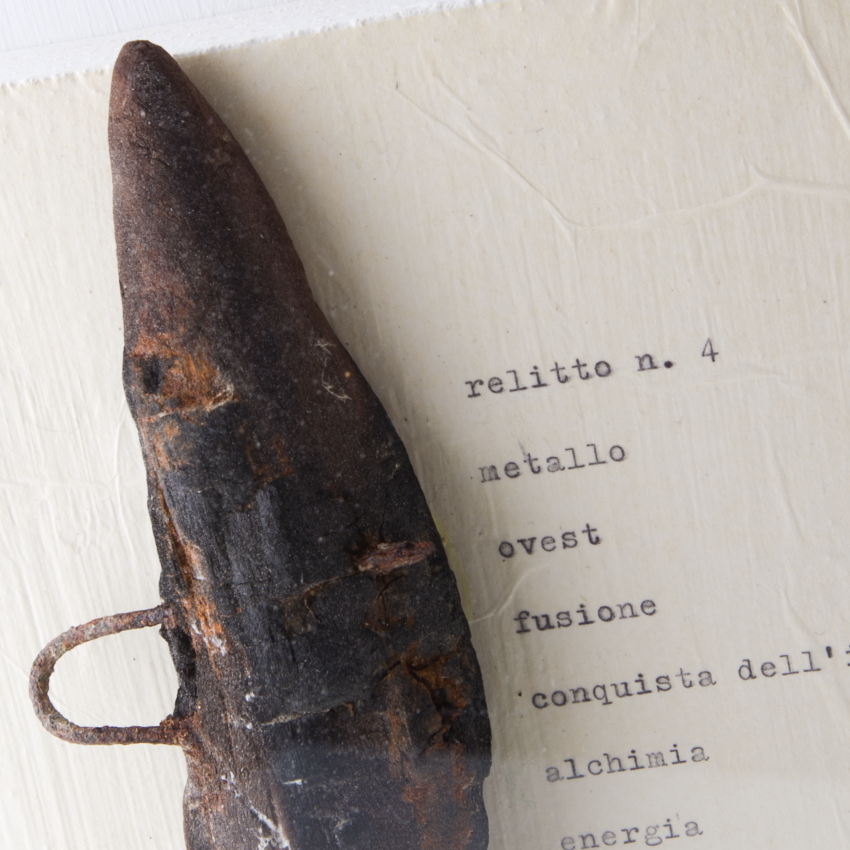 relitto n. 4
metallo
ovest
fusione
conquista dell'i
alchimia
energia